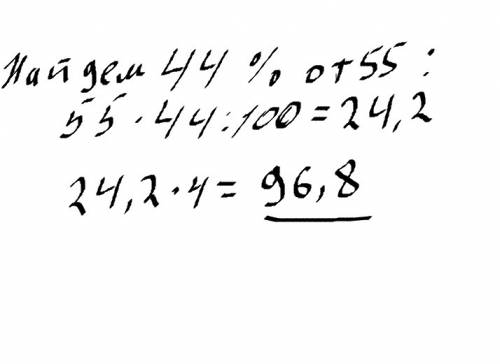 Найдем 44 % от 55 :
55 · 44 : 100 = 24,2
24,2 · 4 = 96,8